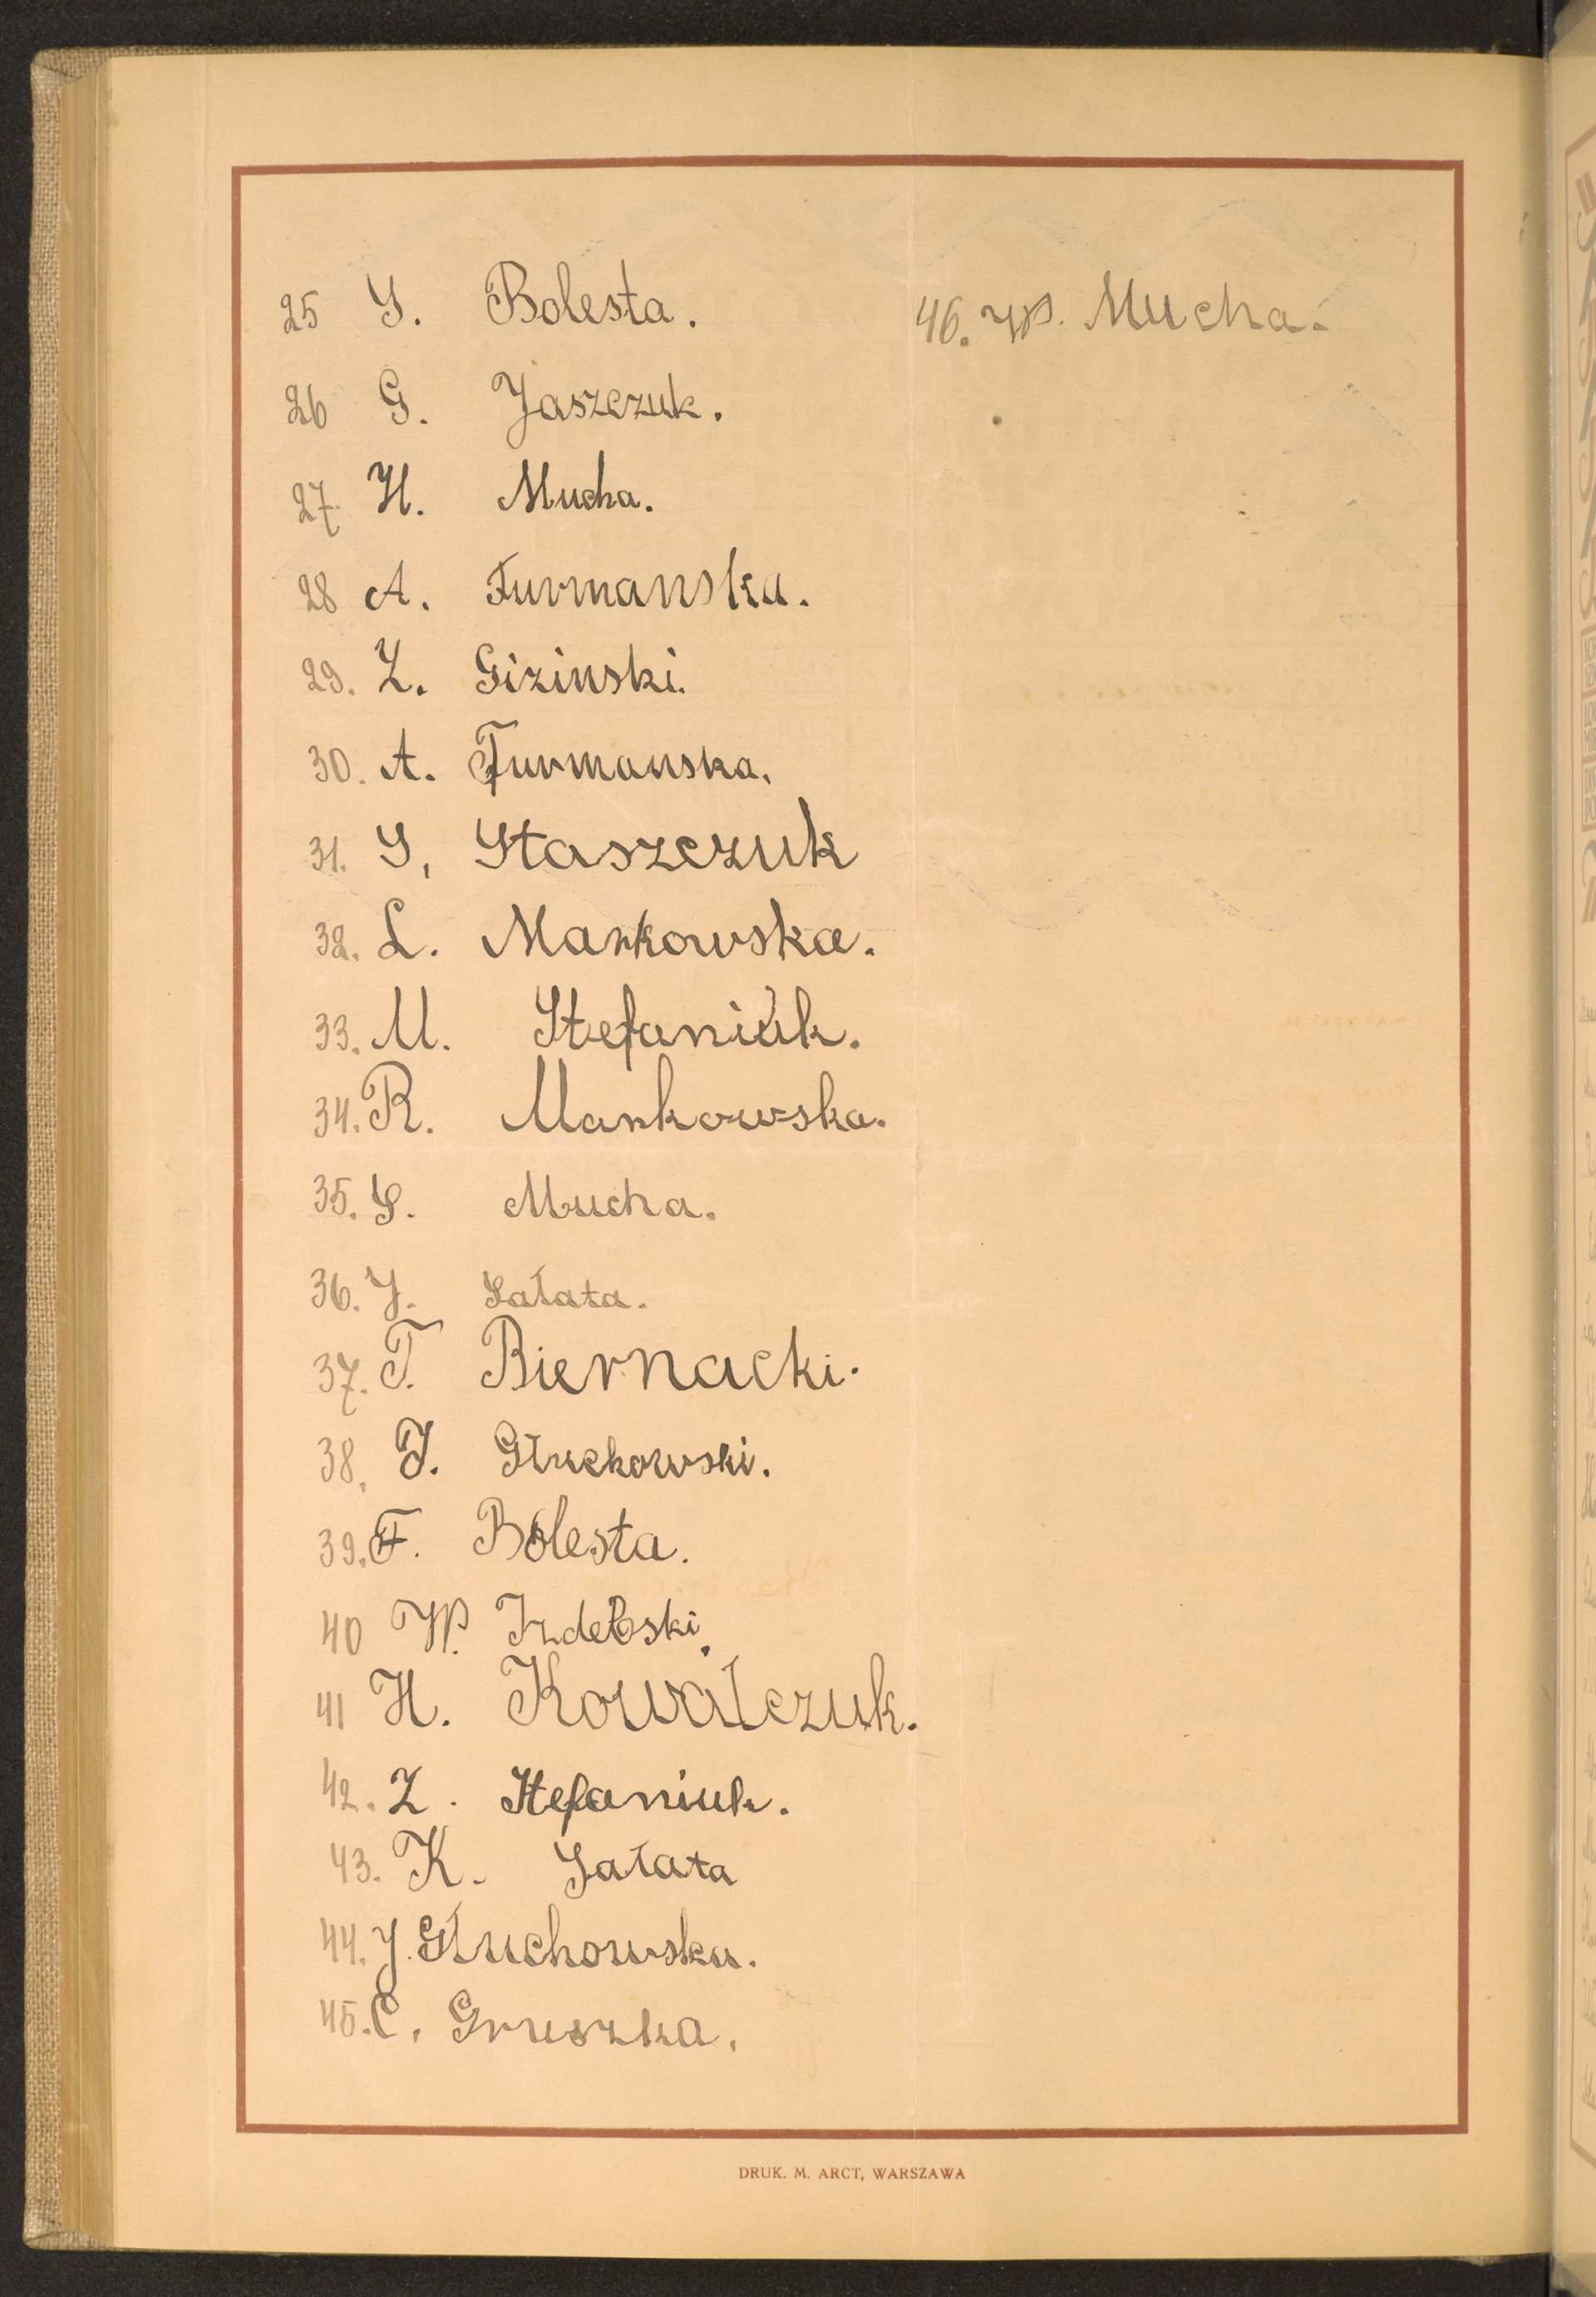 25 S. Bolesta.
26 G. Jaszczuk.
27. H. Mucha.
28 A. Furmanska.
29. Z. Gizinski.
30. A. Furmanska.
31. S. Staszczuk
32. L. Mankowska.
33. M. Stefaniuk.
34. R. Mankowska.
35. S. Mucha.
36. J. Sałata.
37. T. Biernacki.
38. J. Głuchowski.
39. F. Bolesta.
40 W. Izdebski.
41 H. Kowalczuk.
42. Z. Stefaniuk.
43. K. Sałata
44. J. Głuchowska.
45. C. Gruszka.
46. W. Mucha.
DRUK. M. ARCT, WARSZAWA